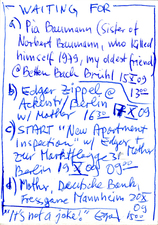 - WAITING FOR
a) Pia Baumann (Sister of
Norbert Baumann, who killed
himself 1979, my oldest friend)
@Betten Bach Brühl 15X09
13:00
b) Edgar Zippel @
Ackerstr/Berlin
w/ Mother 16:30 17X09
c) START "New Apartment
Inspection" w/ Edgar + Mother
zur Marktlange 31
Berlin 19X09 09:00
d) Mother, Deutsche Bank,
Fressgasse Mannheim 20X09
"It's not a joke!" Egon 15:00